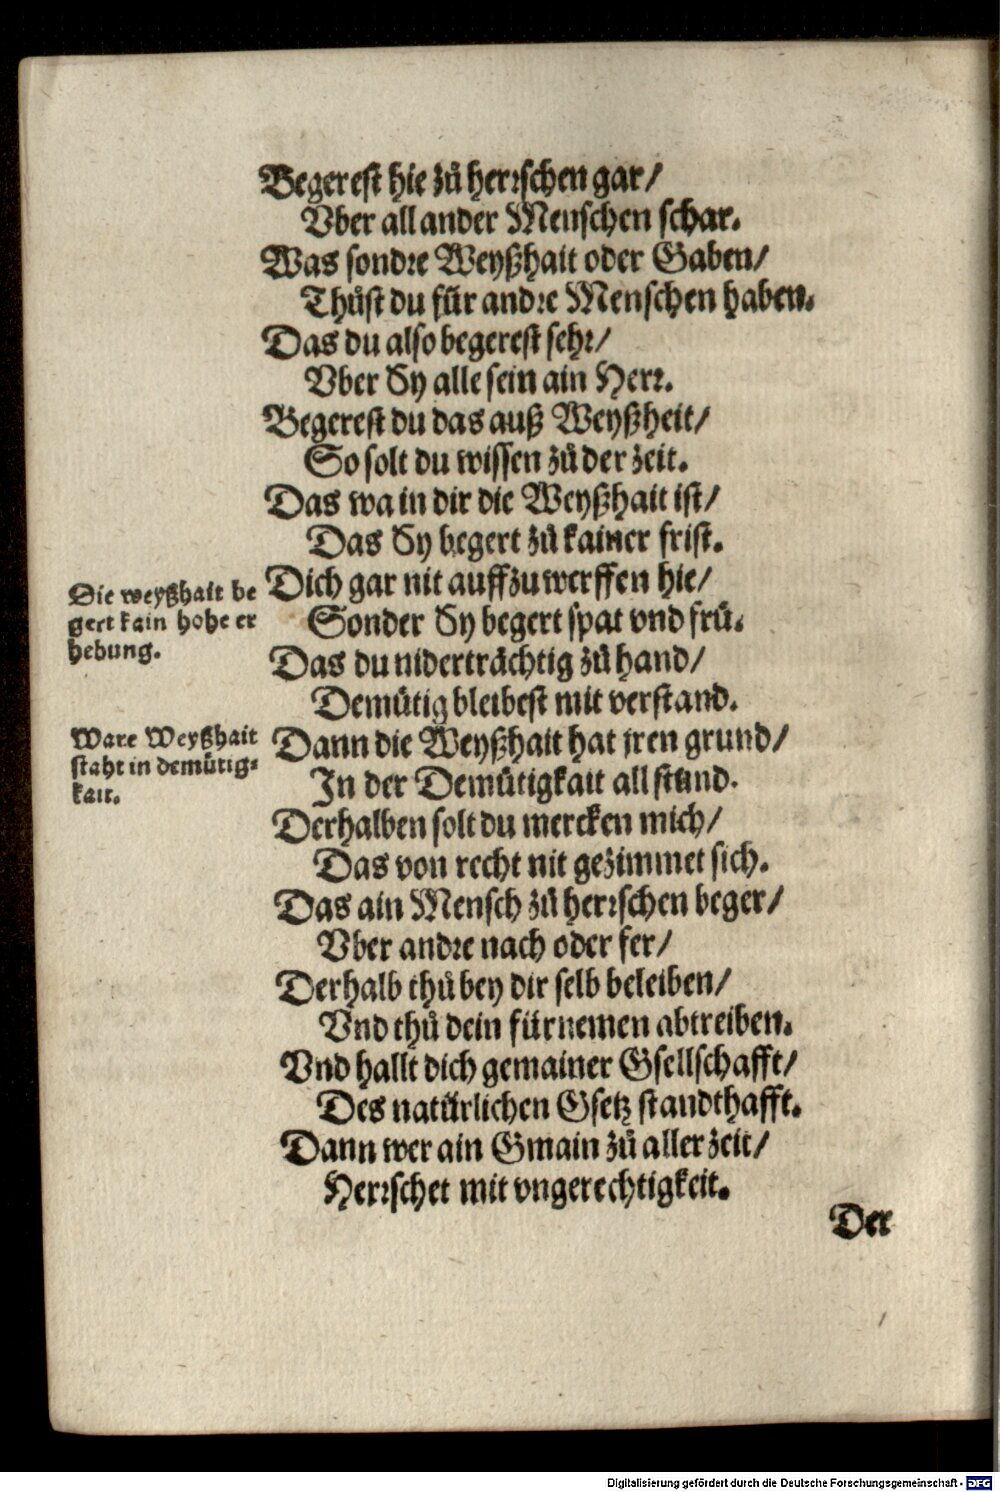 Begerest hie zů herrschen gar/
Vber all ander Menschen schar.
Was sondre Weyßhait oder Gaben/
Thůst du für andre Menschen haben.
Das du also begerest sehr/
Vber Sy alle sein ain Herr.
Begerest du das auß Weyßheit/
So solt du wissen zů der zeit.
Das wa in dir die Weyßhait ist/
Das Sy begert zů kainer frist.
Die weyßhait be
gert kain hohe er
hebung.
Dich gar nit auffzuwerffen hie/
Sonder Sy begert spat vnd frü.
Das du niderträchtig zů hand/
Demütig bleibest mit verstand.
Ware Weyßhait
staht in demütig-
kait.
Dann die Weyßhait hat jren grund/
In der Demütigkait all stund.
Derhalben solt du mercken mich/
Das von recht nit gezimmet sich.
Das ain Mensch zů herrschen beger/
Vber andre nach oder fer/
Derhalb thů bey dir selb beleiben/
Vnd thů dein fürnemen abtreiben.
Vnd hallt dich gemainer Gsellschafft/
Des natürlichen Gsetz standthafft.
Dann wer ain Gmain zů aller zeit/
Herrschet mit vngerechtigkeit.
Der
Digitalisierung gefördert durch die Deutsche Forschungsgemeinschaft - DFG